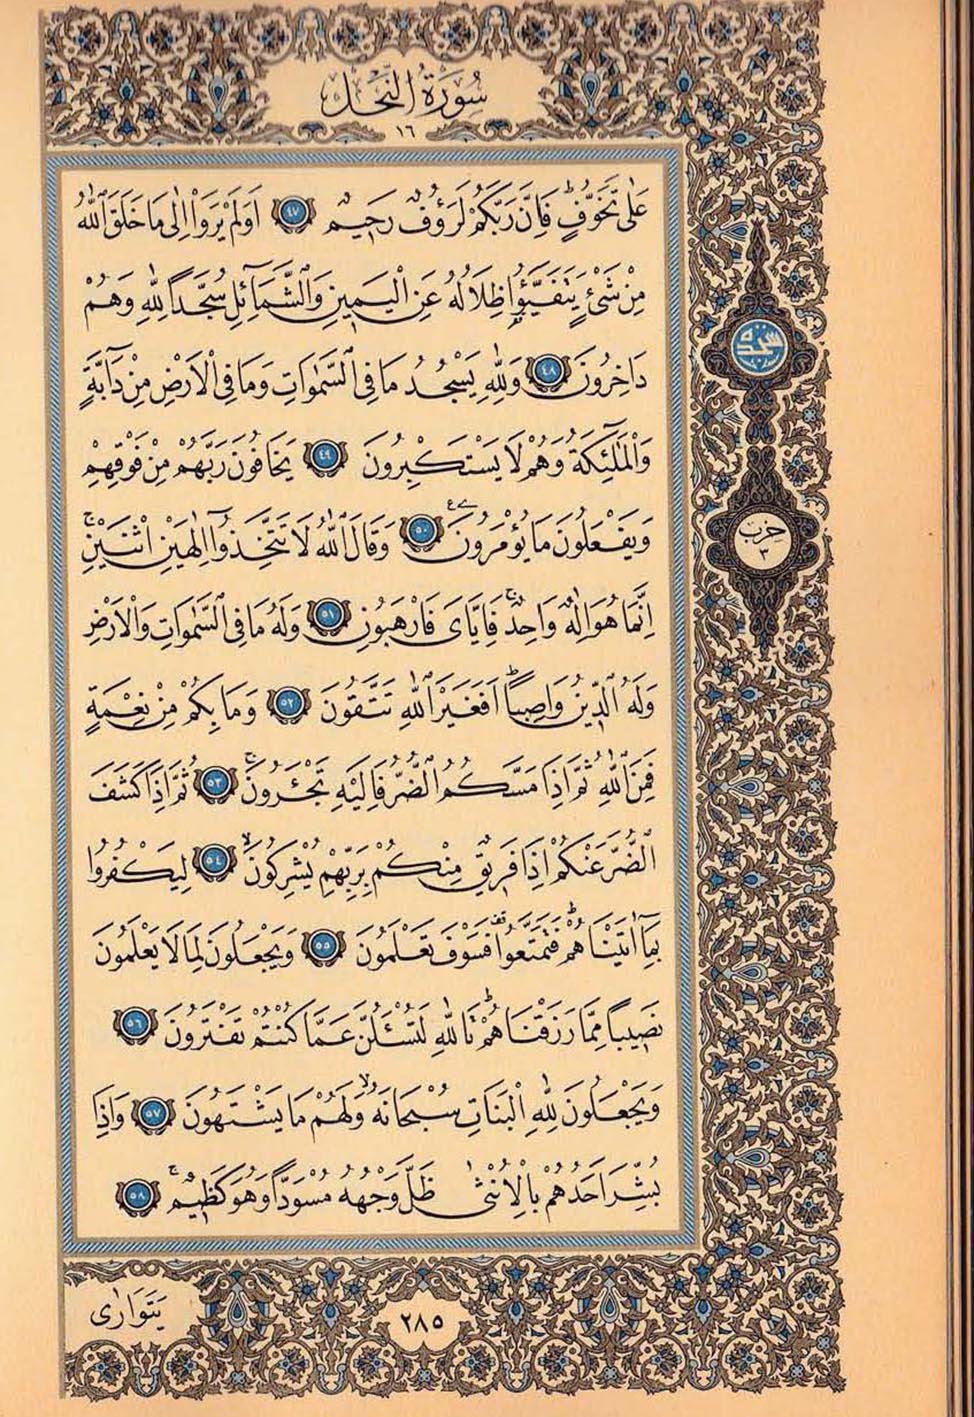 سُورَةُ النَّحْلِ
١٦
عَلٰى تَخَوُّفٍۜ فَاِنَّ رَبَّكُمْ لَرَؤُ۫فٌ رَح۪يمٌ ﴿٤٧﴾ اَوَلَمْ يَرَوْا اِلٰى مَا خَلَقَ اللّٰهُ
مِنْ شَيْءٍ يَتَفَيَّؤُ۬ا ظِلَالُهُ عَنِ الْيَم۪ينِ وَالشَّمَٓائِلِ سُجَّدًا لِلّٰهِ وَهُمْ
دَاخِرُونَ ﴿٤٨﴾ وَلِلّٰهِ يَسْجُدُ مَا فِي السَّمٰوَاتِ وَمَا فِي الْاَرْضِ مِنْ دَٓابَّةٍ
وَالْمَلٰٓئِكَةُ وَهُمْ لَا يَسْتَكْبِرُونَ ﴿٤٩﴾ يَخَافُونَ رَبَّهُمْ مِنْ فَوْقِهِمْ
وَيَفْعَلُونَ مَا يُؤْمَرُونَ ﴿٥٠﴾ وَقَالَ اللّٰهُ لَا تَتَّخِذُٓوا اِلٰهَيْنِ اثْنَيْنِۚ
اِنَّمَا هُوَ اِلٰهٌ وَاحِدٌۚ فَاِيَّايَ فَارْهَبُونِ ﴿٥١﴾ وَلَهُ مَا فِي السَّمٰوَاتِ وَالْاَرْضِ
وَلَهُ الدّ۪ينُ وَاصِبًاۜ اَفَغَيْرَ اللّٰهِ تَتَّقُونَ ﴿٥٢﴾ وَمَا بِكُمْ مِنْ نِعْمَةٍ
فَمِنَ اللّٰهِ ثُمَّ اِذَا مَسَّكُمُ الضُّرُّ فَاِلَيْهِ تَجْـَٔرُونَۚ ﴿٥٣﴾ ثُمَّ اِذَا كَشَفَ
الضُّرَّ عَنْكُمْ اِذَا فَر۪يقٌ مِنْكُمْ بِرَبِّهِمْ يُشْرِكُونَۙ ﴿٥٤﴾ لِيَكْفُرُوا
بِمَٓا اٰتَيْنَاهُمْۜ فَتَمَتَّعُوا۠ فَسَوْفَ تَعْلَمُونَ ﴿٥٥﴾ وَيَجْعَلُونَ لِمَا لَا يَعْلَمُونَ
نَص۪يبًا مِمَّا رَزَقْنَاهُمْۜ تَاللّٰهِ لَتُسْـَٔلُنَّ عَمَّا كُنْتُمْ تَفْتَرُونَ ﴿٥٦﴾
وَيَجْعَلُونَ لِلّٰهِ الْبَنَاتِ سُبْحَانَهُۙ وَلَهُمْ مَا يَشْتَهُونَ ﴿٥٧﴾ وَاِذَا
بُشِّرَ اَحَدُهُمْ بِالْاُنْثٰى ظَلَّ وَجْهُهُ مُسْوَدًّا وَهُوَ كَظ۪يمٌۚ ﴿٥٨﴾
سجده
حزب
٣
يَتَوَارٰى
٢٨٥